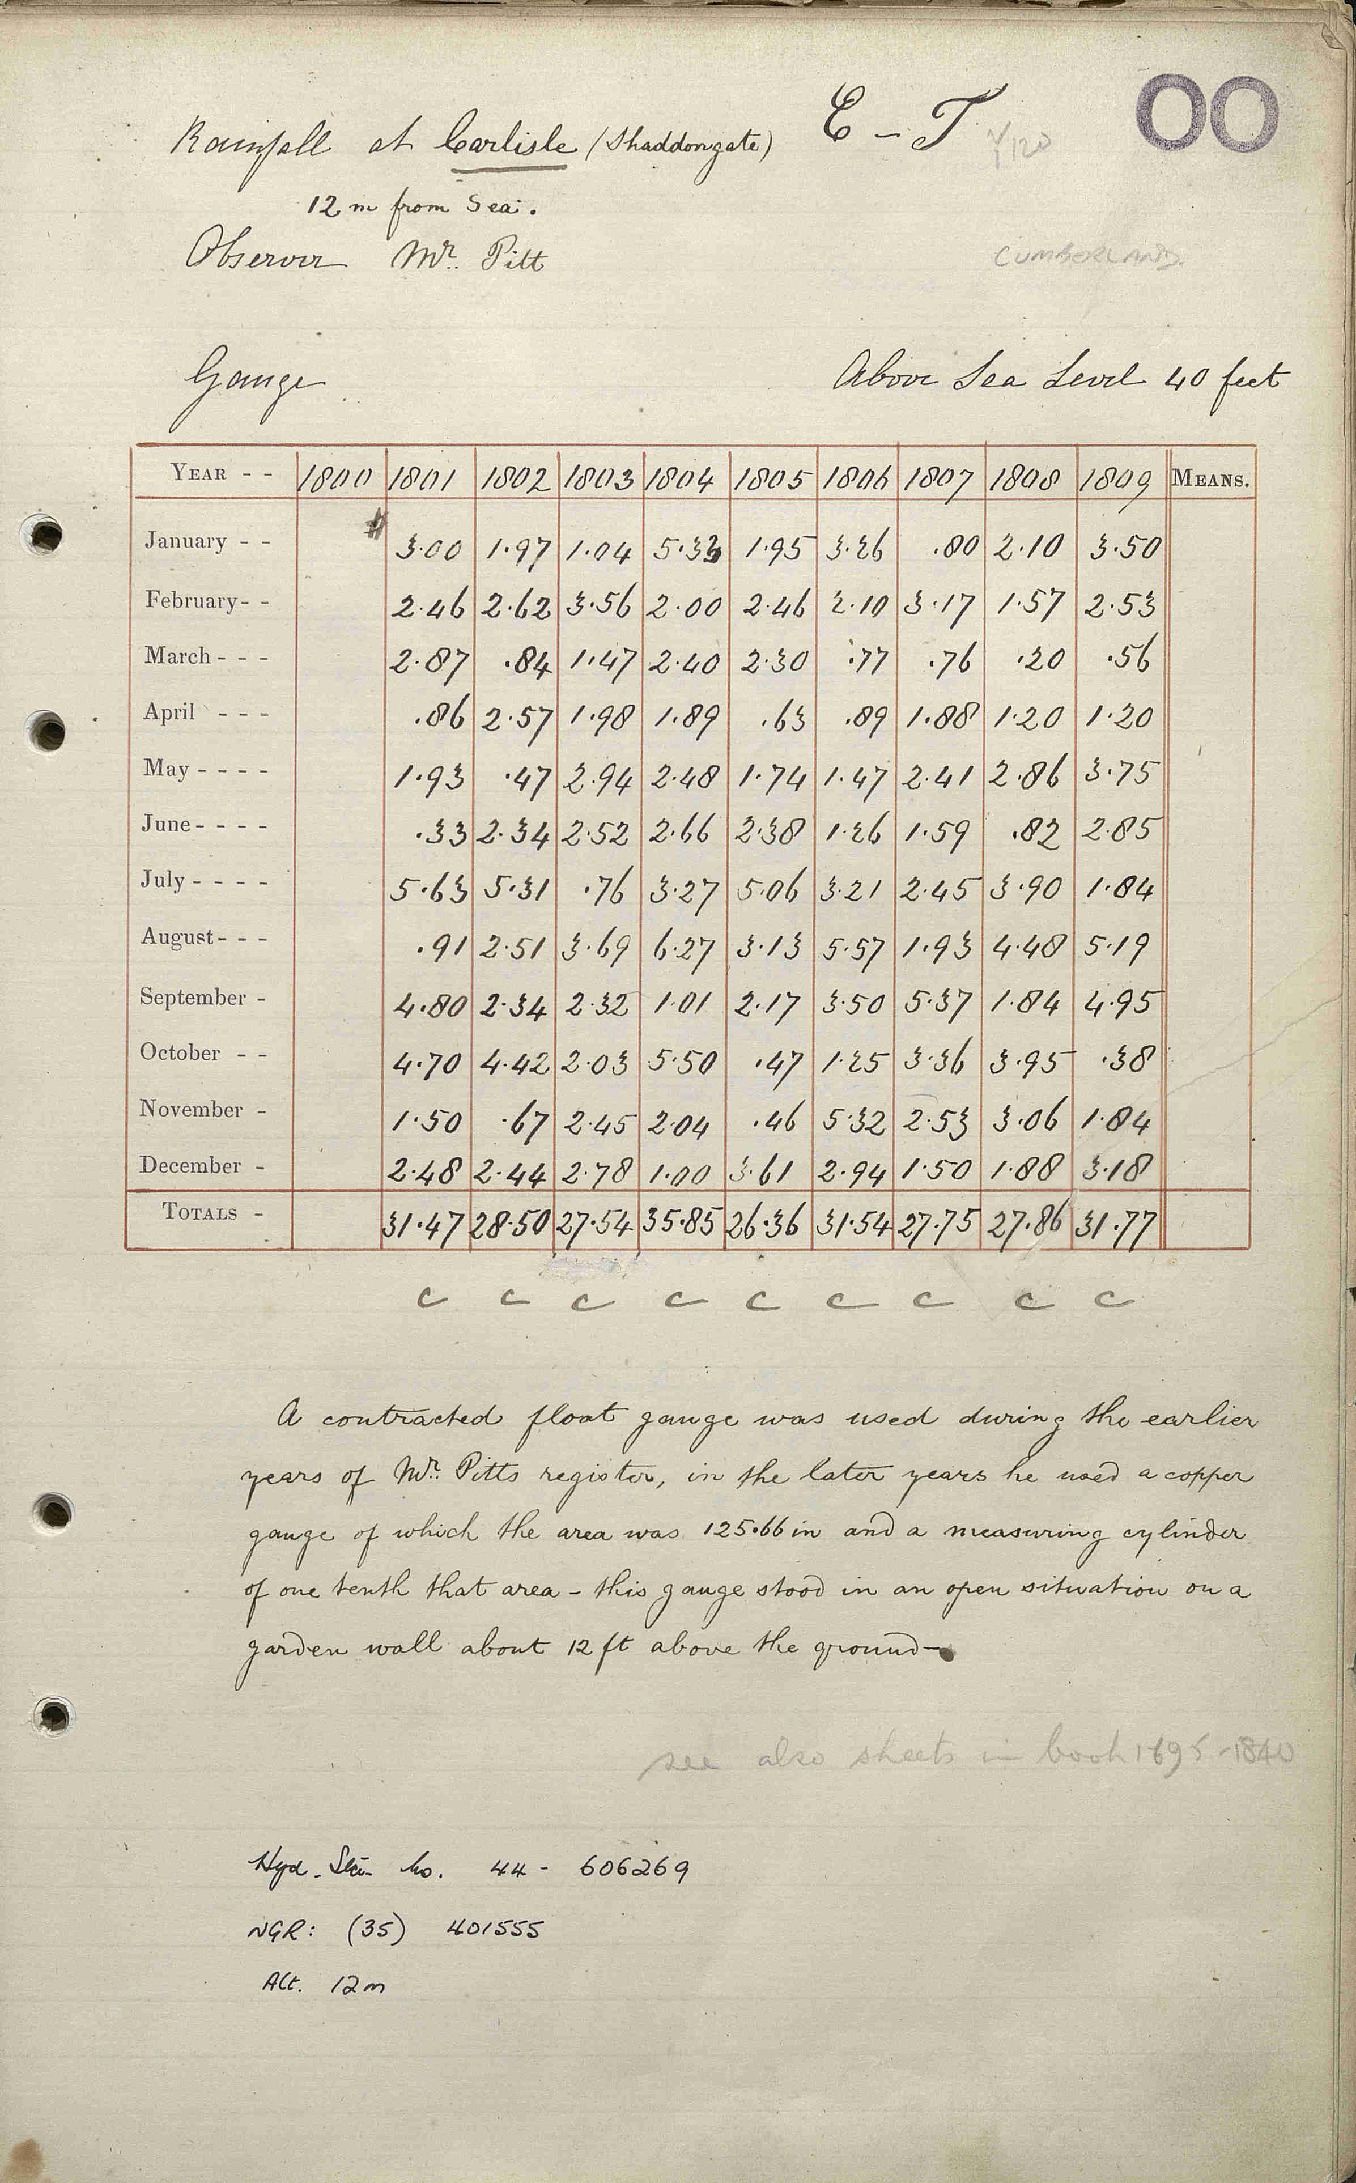 OO
Rainfall at Carlisle (Shaddongate) C - T
12 m from Sea.
Observer Mr. Pitt
CUMBERLAND
Gauge Above Sea Level 40 feet
YEAR - - 1800 1801 1802 1803 1804 1805 1806 1807 1808 1809 MEANS.
January - - # 3.00 1.97 1.04 5.33 1.95 3.26 .80 2.10 3.50
February - - 2.46 2.62 3.56 2.00 2.46 2.10 3.17 1.57 2.53
March - - - 2.87 .84 1.47 2.40 2.30 .77 .76 .20 .56
April - - - .86 2.57 1.98 1.89 .63 .89 1.88 1.20 1.20
May - - - - 1.93 .47 2.94 2.48 1.74 1.47 2.41 2.86 3.75
June - - - - .33 2.34 2.52 2.66 2.38 1.26 1.59 .82 2.85
July - - - - 5.63 5.31 .76 3.27 5.06 3.21 2.45 3.90 1.84
August - - - .91 2.51 3.69 6.27 3.13 5.57 1.93 4.48 5.19
September - 4.80 2.34 2.32 1.01 2.17 3.50 5.37 1.84 4.95
October - - 4.70 4.42 2.03 5.50 .47 1.25 3.36 3.95 .38
November - 1.50 .67 2.45 2.04 .46 5.32 2.53 3.06 1.84
December - 2.48 2.44 2.78 1.00 3.61 2.94 1.50 1.88 3.18
TOTALS - 31.47 28.50 27.54 35.85 26.36 31.54 27.75 27.86 31.77
c c c c c c c c c
A contracted float gauge was used during the earlier
years of Mr. Pitts register, in the later years he used a copper
gauge of which the area was 125.66 in and a measuring cylinder
of one tenth that area - this gauge stood in an open situation on a
garden wall about 12 ft above the ground -
see also sheets in book 1695 - 1840
Hyd. Stn. No. 44 - 606269
NGR: (35) 401555
Alt. 12m